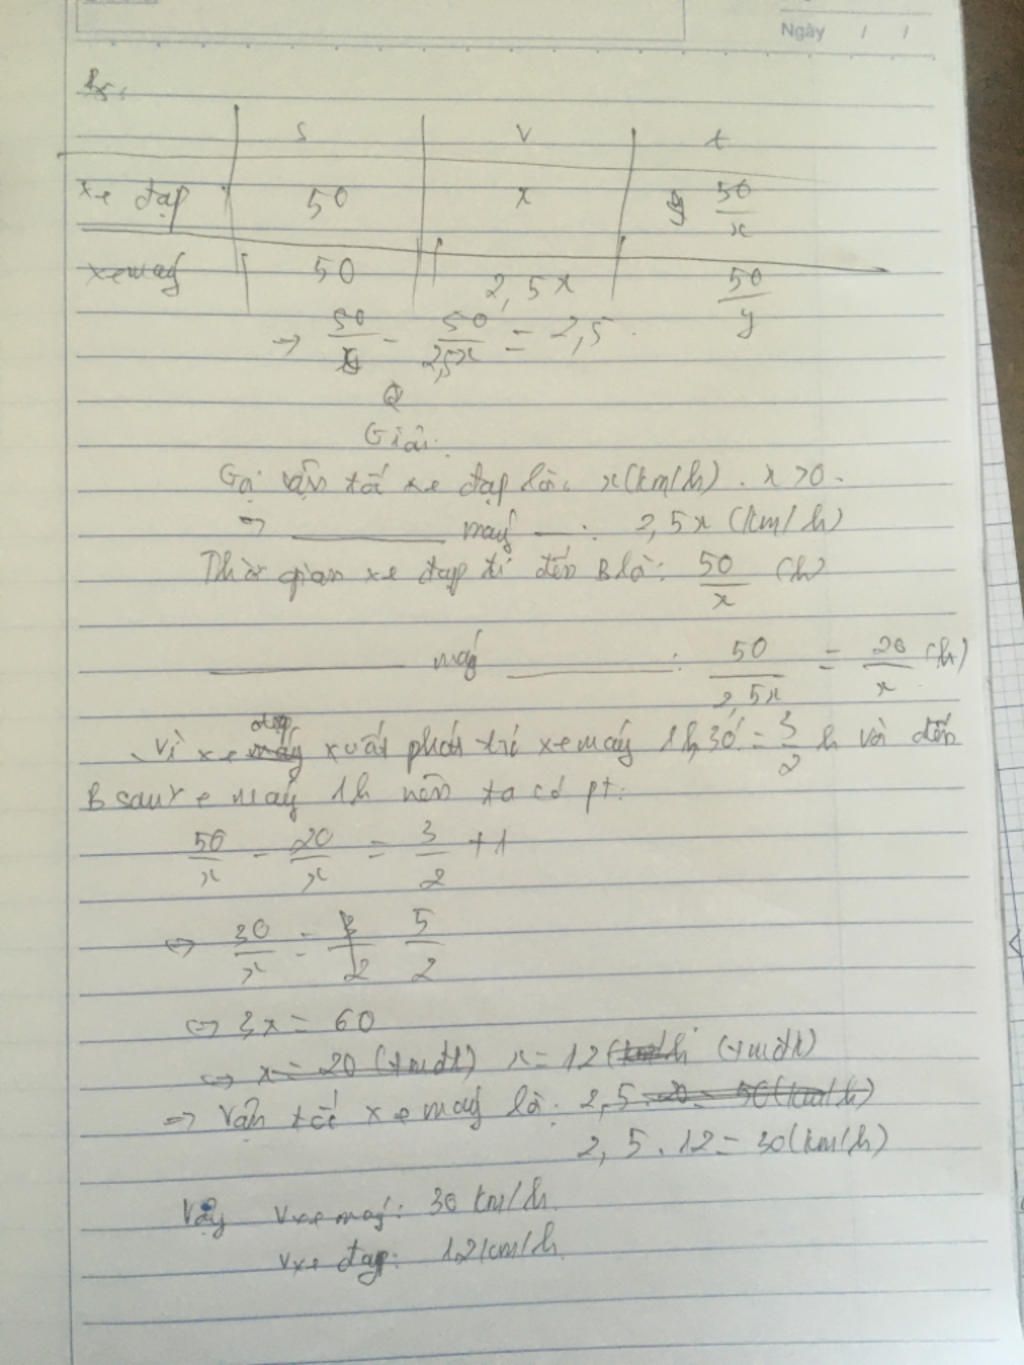 Ngày / /
B5:
s v t
xe đạp 50 x 50/x
xe máy 50 2,5x 50/y
→ 50/x - 50/2,5x = 2,5
Giải:
Gọi vận tốc xe đạp là: x(km/h). x>0.
=> ______ máy __: 2,5x (km/h)
Thời gian xe đạp đi đến B là: 50/x (h)
______ máy ______: 50/2,5x = 20/x (h)
Vì xe đạp xuất phát trc xe máy 1h30' = 3/2 h và đến
B sau xe máy 1h nên ta có pt:
50/x - 20/x = 3/2 + 1
<=> 30/x = 5/2
<=> 3x = 60
<=> x = 20 (tmđk) x = 12 (tmđk)
=> Vận tốc xe máy là: 2,5.20 = 50(km/h)
2,5.12 = 30(km/h)
Vậy vxe máy: 30 km/h.
vxe đạp: 12km/h.